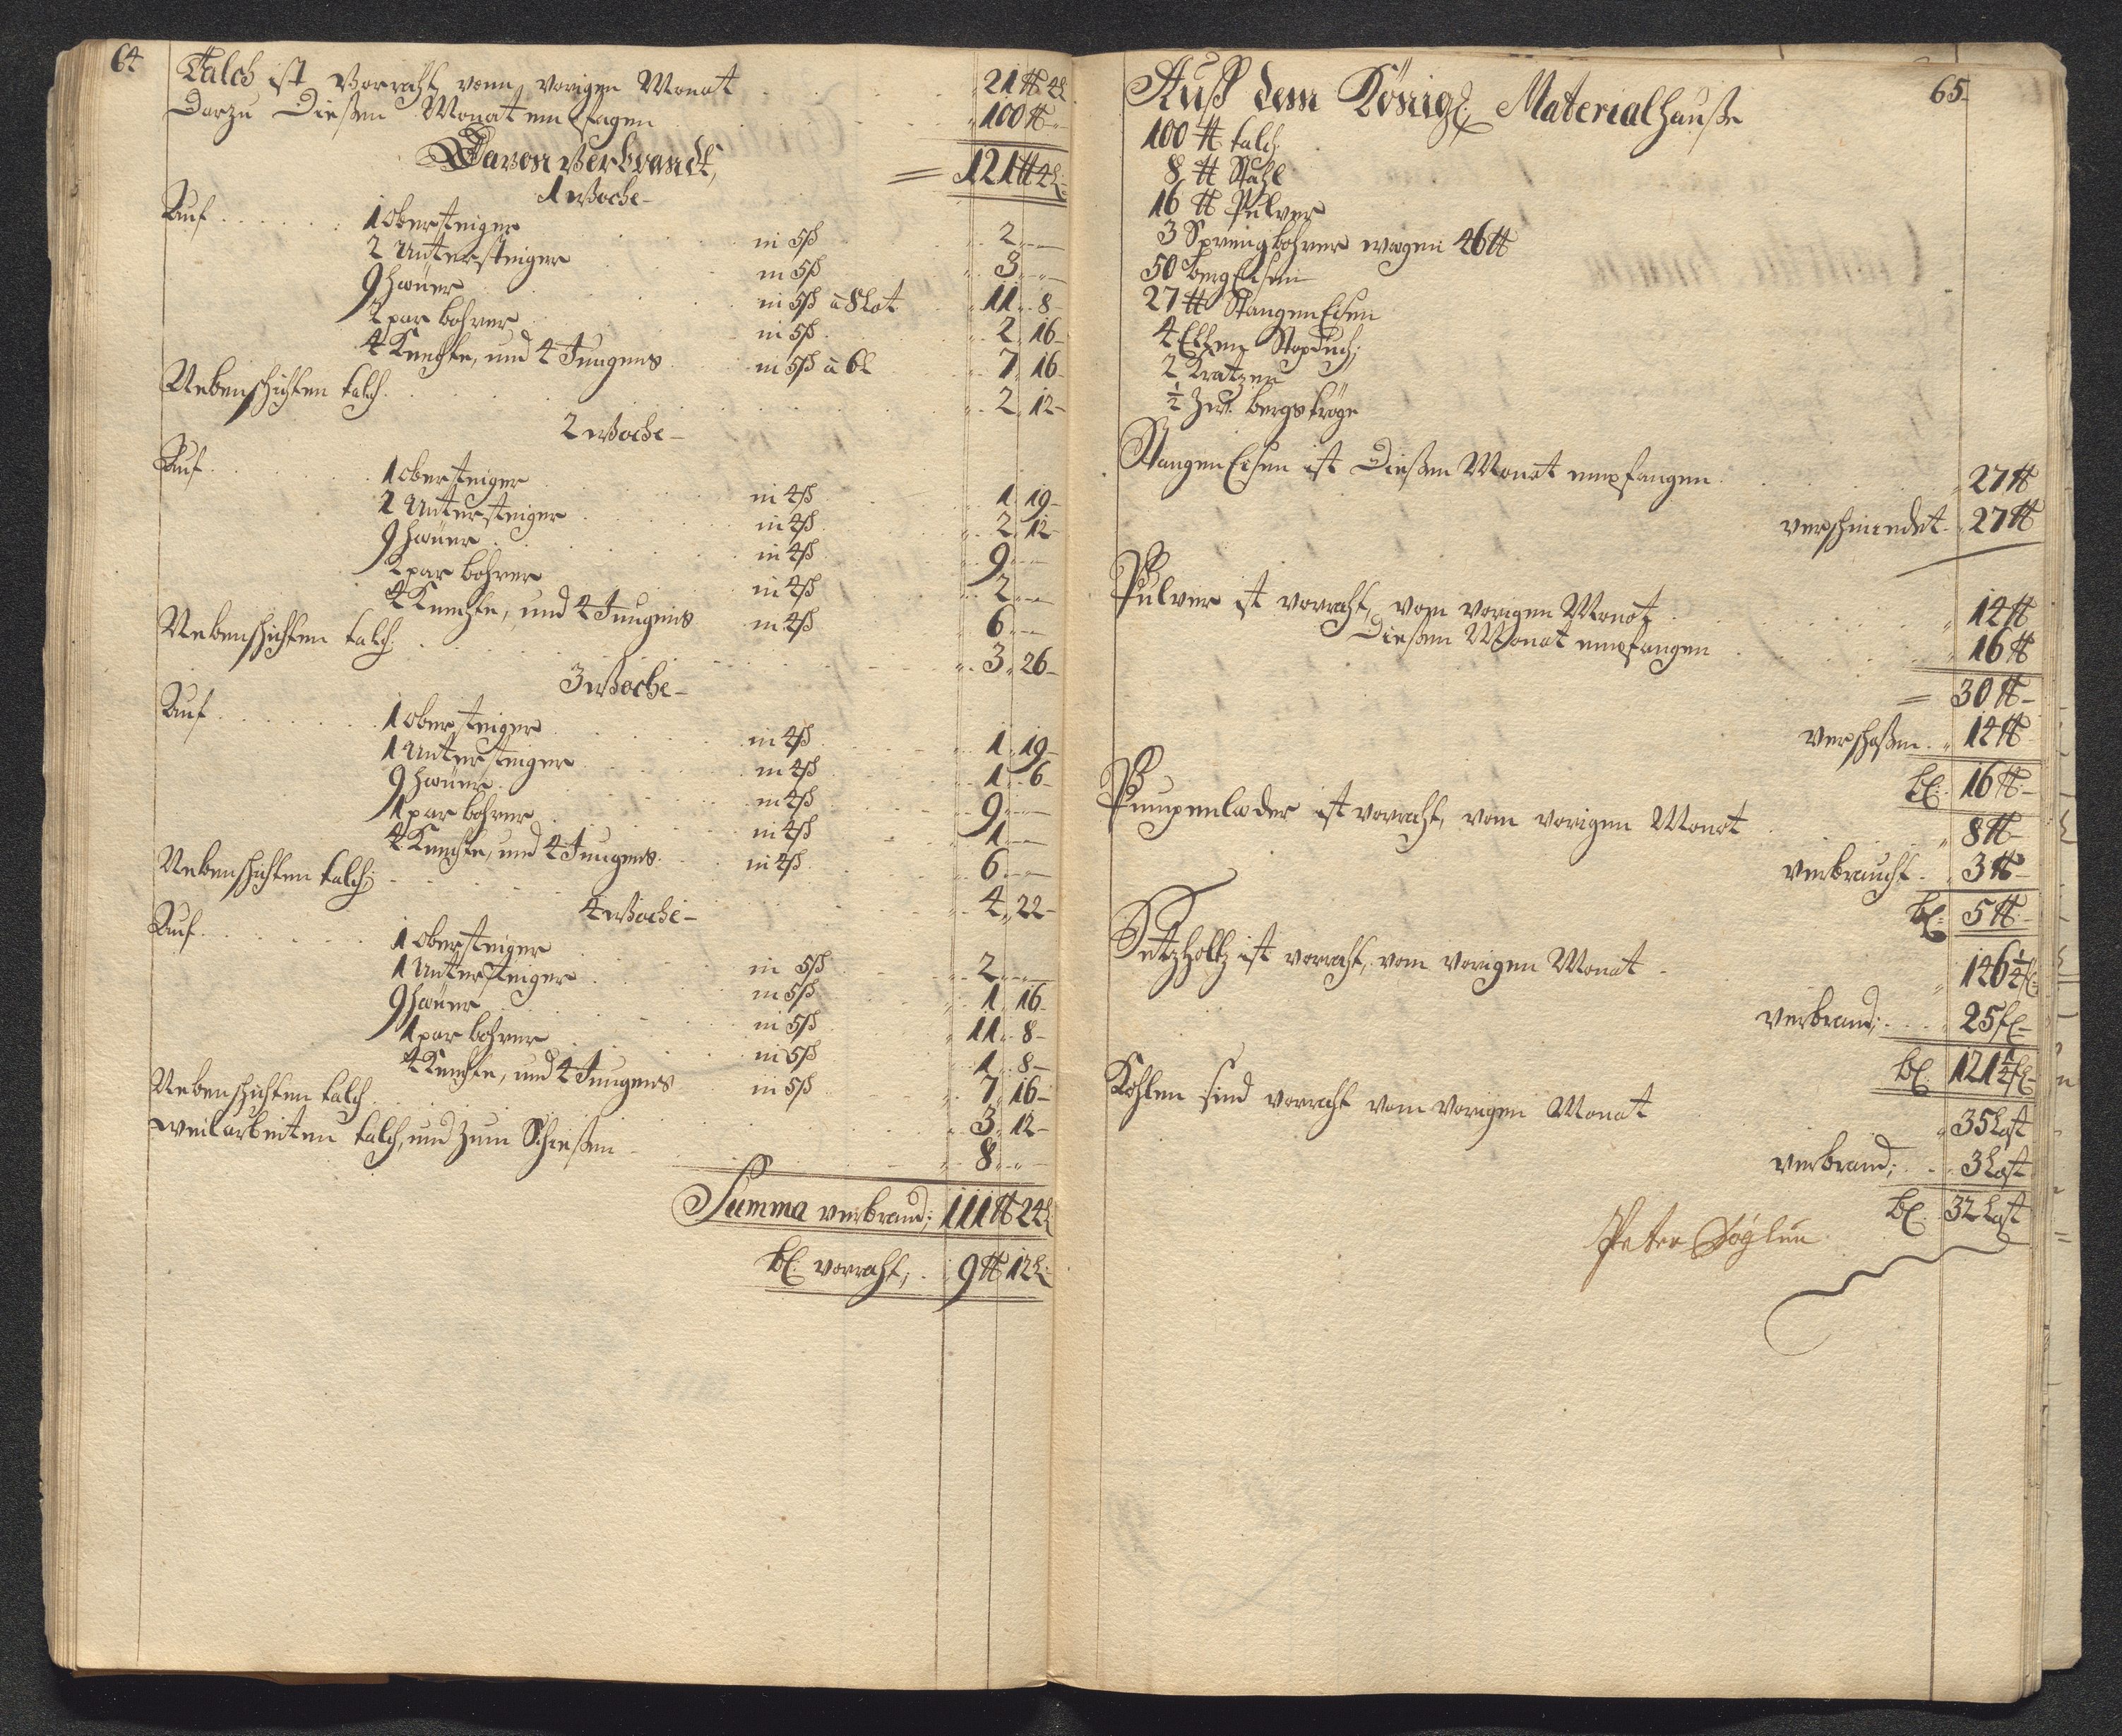 64
Talch ist Vorraht vom vorigen Monat 21 ℔ 4 L
Darzu Dießen Monat empfagen 100 ℔
Davon Verbrandt, = 121 ℔ 4 L
1 Woche
Auf 1 Obersteiger in 5 ß 2
2 Untersteiger in 5 ß 3
9 Hauer in 5 ß à 8 Lot 11 8
2 par bohrer in 5 ß 2 16
4 Knechte, und 4 Jungens in 5 ß à 6 L 7 16
Nebenschichten talch 2 12
2 Woche
Auf 1 Obersteiger in 4 ß 1 19
2 Untersteiger in 4 ß 2 12
9 Hauer in 4 ß 9
2 par bohrer in 4 ß 2
4 Knechte, und 4 Jungens in 4 ß 6
Nebenschichten talch 3 26
3 Woche
Auf 1 Obersteiger in 4 ß 1 19
1 Untersteiger in 4 ß 1 6
9 Hauer in 4 ß 9
1 par bohrer in 4 ß 1
4 Knechte, und 4 Jungens in 4 ß 6
Nebenschichten talch 4 22
4 Woche
Auf 1 Obersteiger in 5 ß 2
1 Untersteiger in 5 ß 1 16
9 Hauer in 5 ß 11 8
1 par bohrer in 5 ß 1 8
4 Knechte, und 4 Jungens in 5 ß 7 16
Nebenschichten talch 3 12
weilarbeiten talch, und zum Schießen 8
Summa verbrand; 111 ℔ 24 L
bl. vorraht; 9 ℔ 12 L
65
Auß dem Königl. Materialhauße
100 ℔ talch
8 ℔ Stahl
16 ℔ Pulver
3 Sprengbohrer wagen 46 ℔
50 bergEisen
27 ℔ StangenEisen
4 Ellen Stoptuch;
2 Kratzen
½ Zw. bergströge
StangenEisen ist Dießen Monat empfangen 27 ℔
verschmiedet 27 ℔
Pulver ist vorraht, vom vorigen Monat 14 ℔
Dießen Monat empfangen 16 ℔
= 30 ℔
verschoßen 14 ℔
bl. 16 ℔
Pumpenlæder ist vorraht, vom vorigen Monat 8 ℔
verbraucht 3 ℔
bl. 5 ℔
Setzholtz ist vorraht, vom vorigen Monat 146¼ fl
verbrand; 25 fl
bl. 121¼ fl
Kohlen sind vorraht vom vorigen Monat 35 Last
verbrand; 3 Last
bl. 32 Last
Peter